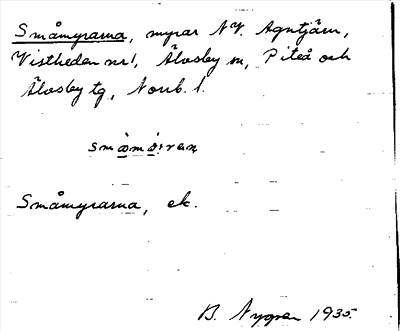 Småmyrarna, myrar NV. Agntjärn,
Vistheden nr 1, Älvsby sn, Piteå och
Älvsby tg, Norrb. l.
Småmyrarna, ek.
B. Nygren 1935.